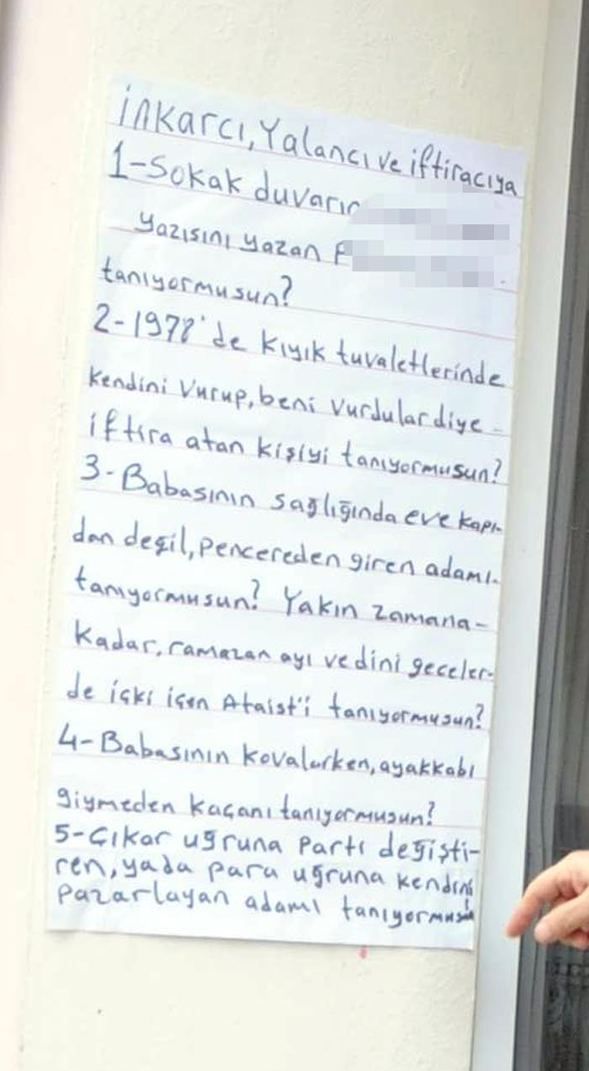 İnkarcı, Yalancı ve iftiracıya
1-Sokak duvarın
yazısını yazan
tanıyormusun?
2-1978'de Kıyık tuvaletlerinde
kendini Vurup, beni Vurdular diye-
iftira atan kişiyi tanıyormusun?
3-Babasının sağlığında eve kapı-
dan değil, pencereden giren adamı.
tanıyormusun? Yakın zamana-
kadar, ramazan ayı ve dini geceler-
de içki içen Ataist'i tanıyormusun?
4-Babasının kovalarken, ayakkabı
giymeden kaçanı tanıyormusun?
5-Çıkar uğruna Parti değişti-
ren, yada para uğruna kendini
pazarlayan adamı tanıyormusun